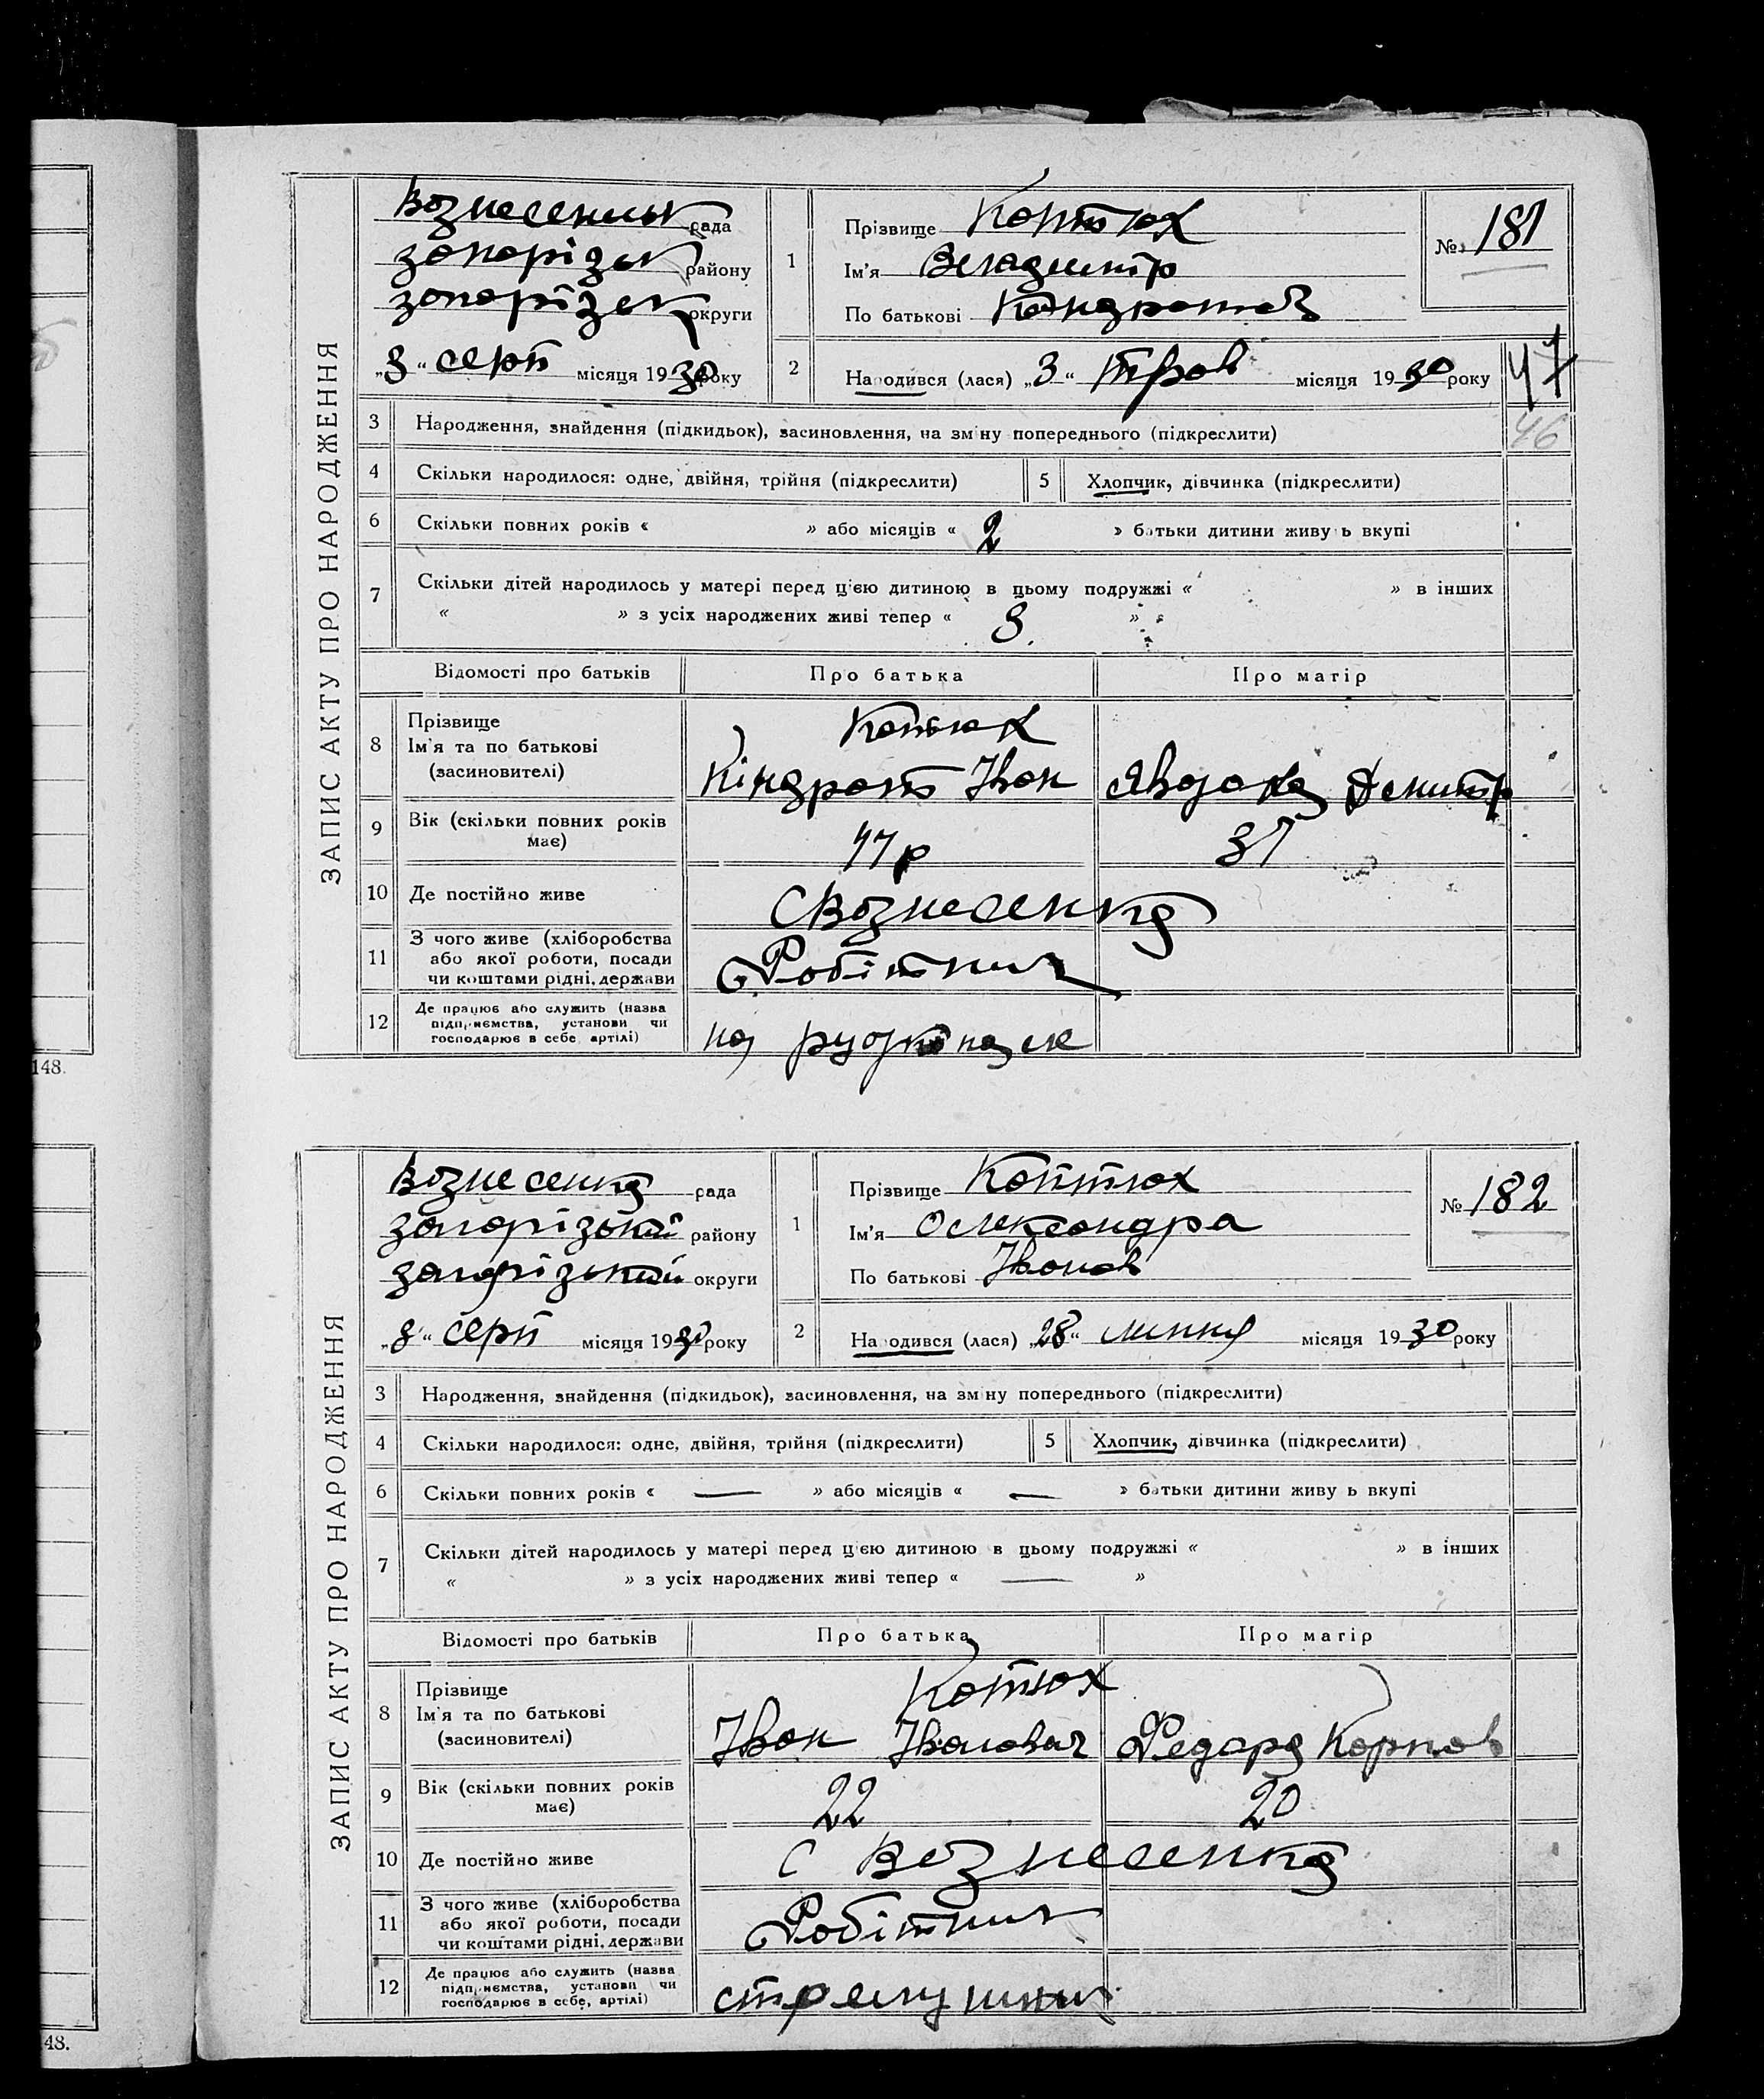 148.
48.
ЗАПИС АКТУ ПРО НАРОДЖЕННЯ
Вознесенськ рада
запорізьк району
запорізьк округи
„3“ серп місяця 1930 року
1
Прізвище Коптюх
Ім'я Владимир
По батькові Кондратов
№ 181
2
Народився (лася) „3“ трав місяця 1930 року
47
46
3 Народження, знайдення (підкидьок), засиновлення, на зміну попереднього (підкреслити)
4 Скільки народилося: одне, двійня, трійня (підкреслити)
5 Хлопчик, дівчинка (підкреслити)
6 Скільки повних років « » або місяців « 2 » батьки дитини живуть вкупі
7 Скільки дітей народилось у матері перед цією дитиною в цьому подружжі « » в інших
« » з усіх народжених живі тепер « 3 »
Відомості про батьків Про батька Про матір
8 Прізвище
Ім'я та по батькові
(засиновителі)
Котюх
Кіндрат Іван
9 Вік (скільки повних років
має)
47 р 37
10 Де постійно живе
С Вознесенка
11 З чого живе (хліборобства
або якої роботи, посади
чи коштами рідні, держави
Робітник
12 Де працює або служить (назва
підприємства, установи чи
господарює в себе, артілі)
на
ЗАПИС АКТУ ПРО НАРОДЖЕННЯ
Вознесенка рада
запорізький району
запорізький округи
„8“ серп місяця 1930 року
1
Прізвище Коптюх
Ім'я Олександра
По батькові Іванов
№ 182
2
Народився (лася) „28“ липня місяця 1930 року
3 Народження, знайдення (підкидьок), засиновлення, на зміну попереднього (підкреслити)
4 Скільки народилося: одне, двійня, трійня (підкреслити)
5 Хлопчик, дівчинка (підкреслити)
6 Скільки повних років « — » або місяців « — » батьки дитини живуть вкупі
7 Скільки дітей народилось у матері перед цією дитиною в цьому подружжі « » в інших
« » з усіх народжених живі тепер « — »
Відомості про батьків Про батька Про матір
8 Прізвище
Ім'я та по батькові
(засиновителі)
Котюх
Іван Іванович Федора Карпов
9 Вік (скільки повних років
має)
22 20
10 Де постійно живе
С Вознесенка
11 З чого живе (хліборобства
або якої роботи, посади
чи коштами рідні, держави
Робітник
12 Де працює або служить (назва
підприємства, установи чи
господарює в себе, артілі)